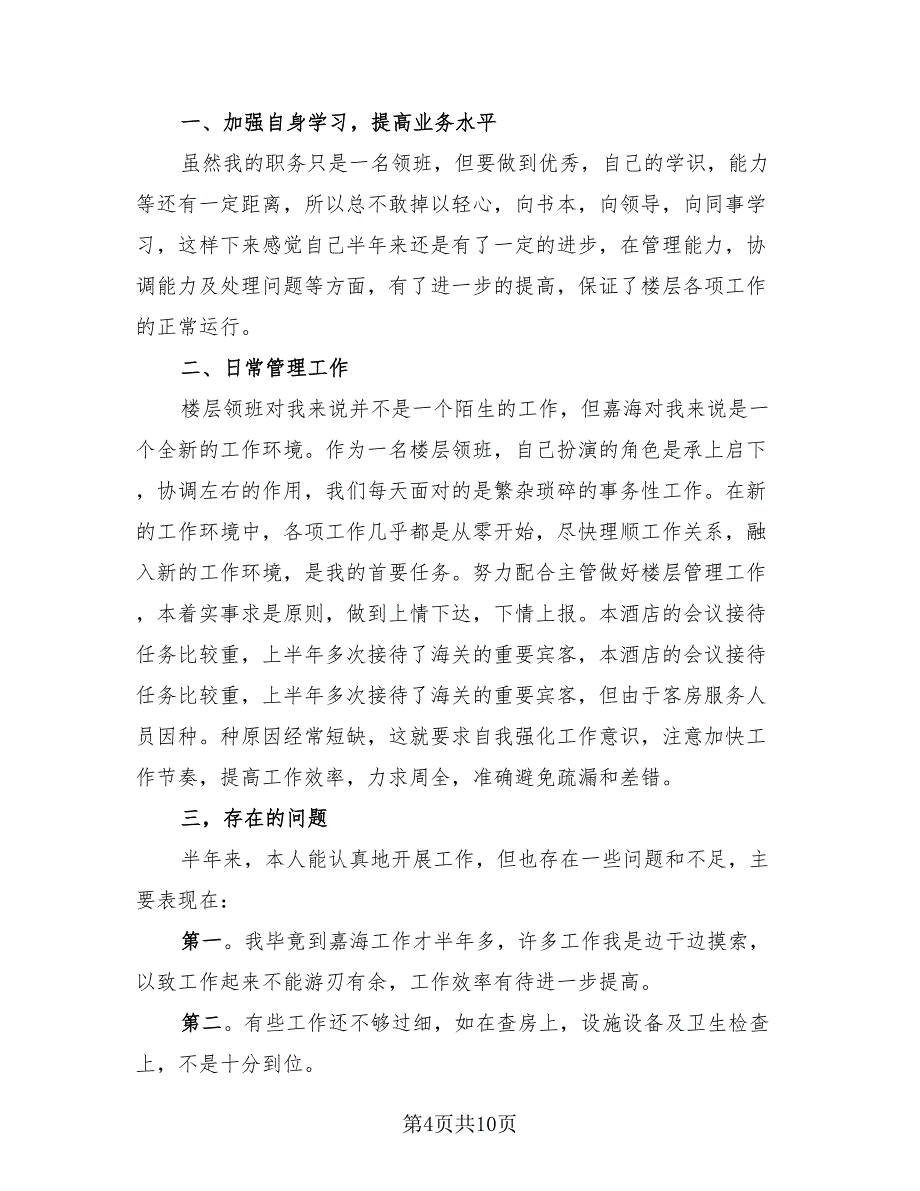 一、加强自身学习，提高业务水平
虽然我的职务只是一名领班，但要做到优秀，自己的学识，能力
等还有一定距离，所以总不敢掉以轻心，向书本，向领导，向同事学
习，这样下来感觉自己半年来还是有了一定的进步，在管理能力，协
调能力及处理问题等方面，有了进一步的提高，保证了楼层各项工作
的正常运行。
二、日常管理工作
楼层领班对我来说并不是一个陌生的工作，但嘉海对我来说是一
个全新的工作环境。作为一名楼层领班，自己扮演的角色是承上启下
，协调左右的作用，我们每天面对的是繁杂琐碎的事务性工作。在新
的工作环境中，各项工作几乎都是从零开始，尽快理顺工作关系，融
入新的工作环境，是我的首要任务。努力配合主管做好楼层管理工作
，本着实事求是原则，做到上情下达，下情上报。本酒店的会议接待
任务比较重，上半年多次接待了海关的重要宾客，本酒店的会议接待
任务比较重，上半年多次接待了海关的重要宾客，但由于客房服务人
员因种。种原因经常短缺，这就要求自我强化工作意识，注意加快工
作节奏，提高工作效率，力求周全，准确避免疏漏和差错。
三，存在的问题
半年来，本人能认真地开展工作，但也存在一些问题和不足，主
要表现在：
第一。我毕竟到嘉海工作才半年多，许多工作我是边干边摸索，
以致工作起来不能游刃有余，工作效率有待进一步提高。
第二。有些工作还不够过细，如在查房上，设施设备及卫生检查
上，不是十分到位。
第4页共10页